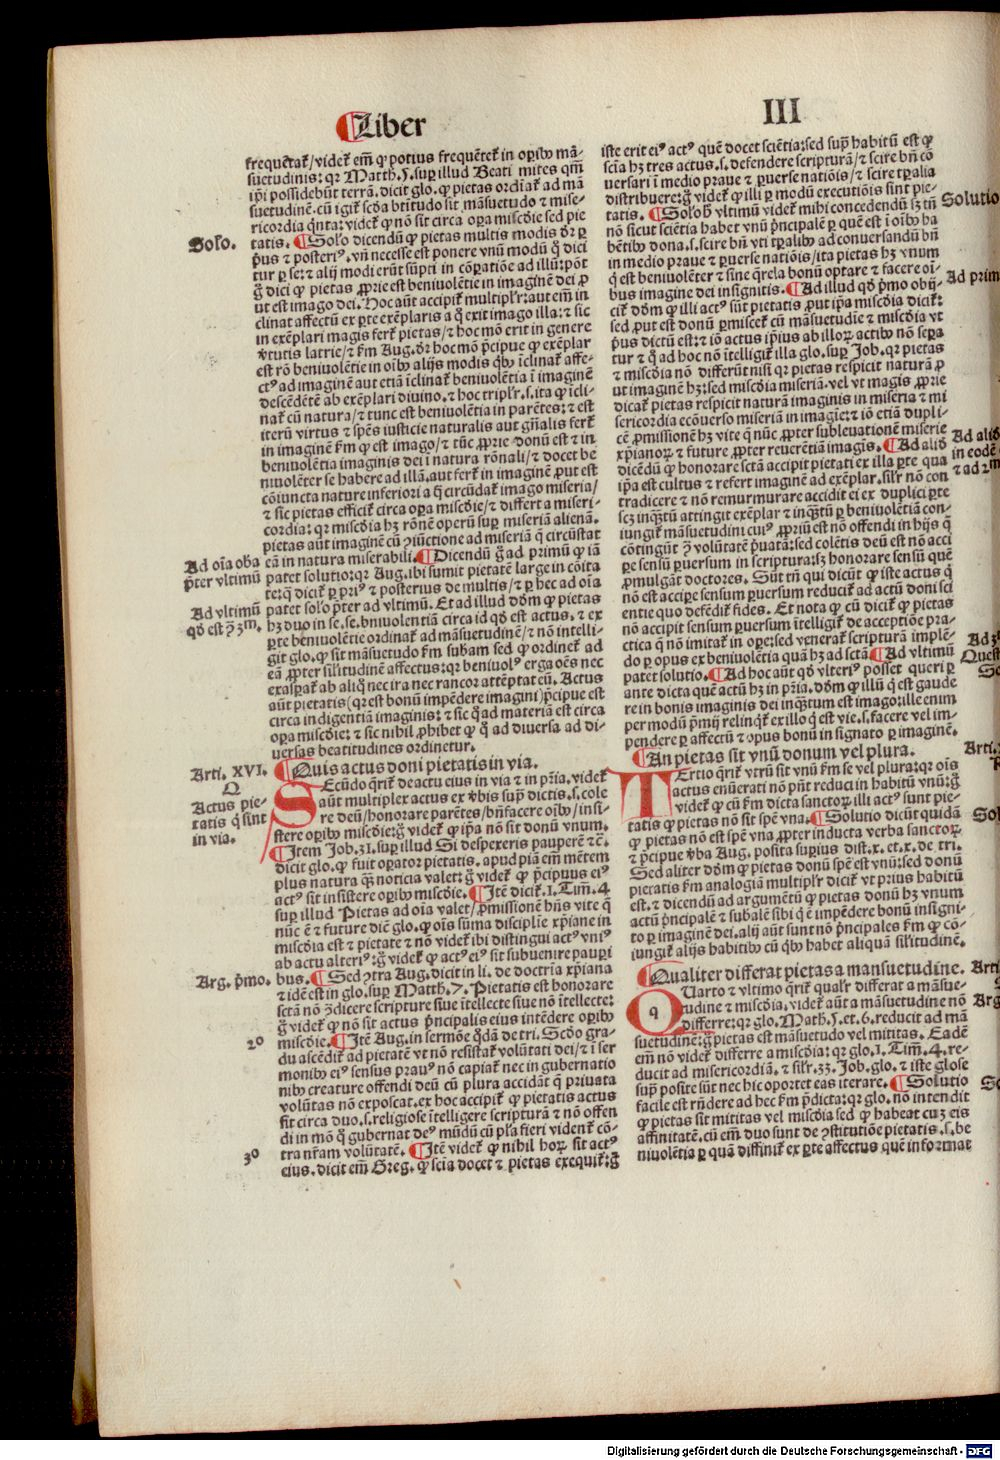 Liber
III
frequētat᷑/videt᷑ em̄ ꝙ potius frequētet᷑ in oꝑibꝰ mā-
suetudinis: qꝛ Matth.5. suꝑ illud Beati mites qm̄
ip̄i possidebūt terrā. dicit glo. ꝙ pietas ordiat᷑ ad mā
suetudinē. cū igit᷑ scd̄a btītudo sit māsuetudo ⁊ mise-
ricordia qͥnta: videt᷑ ꝙ nō sit circa oꝑa mīscd̄ie sed pie
Solo.
tatis. ¶Solō dicendū ꝙ pietas multis modis dr̄ ꝑ
p̄us ⁊ posteriꝰ. vn̄ necesse est ponere vnū modū q̄ dici
tur ꝑ se: ⁊ alij modi erūt sūpti in cōꝑatiōe ad illū: pōt
g̊ dici ꝙ pietas ꝓprie est beniuolētie in imaginē dei ꝓ
ut est imago dei. Hoc aūt accipit᷑ multiplr̄: aut em̄ in
clinat affectū ex ꝑte exēplaris a q̊ exit imago illa: ⁊ sic
in exēplari magis fert᷑ pietas/⁊ hoc mō erit in genere
v̄tutis latrie/⁊ f̄m Aug. dr̄ hoc mō p̄cipue ꝙ exēplar
est rō beniuolētie in oībꝰ alijs modis qͥbꝰ īclinat᷑ affe-
ctꝰ ad imaginē aut etiā īclinat᷑ beniuolētia ī imaginē
descēdētē ab exēplari diuino. ⁊ hoc triplr̄. s. ita ꝙ īcli-
nat᷑ cū natura/⁊ tunc est beniuolētia in parētes: ⁊ est
iterū virtus ⁊ spēs iusticie naturalis aut gn̄alis fert᷑
in imaginē f̄m ꝙ est imago/⁊ tūc ꝓprie donū est ⁊ in
beniuolētia imaginis dei ī natura rōnali/⁊ docet be
niuolēter se habere ad illā. aut fert᷑ in imaginē ꝓut est
cōiuncta nature inferiori a q̄ circūdat᷑ imago miseria/
⁊ sic pietas efficit᷑ circa oꝑa mīscd̄ie/⁊ differt a miseri-
cordia: qꝛ mīscd̄ia hꝫ rōnē operū suꝑ miseriā alienā.
pietas aūt imaginē cū ꝯiūctione ad miseriā q̄ circūstat
Ad oīa oba
p̄ter vltimū
eā in natura miserabili. ¶Dicendū g̊ ad primū ꝙ iā
patet solutio: qꝛ Aug. ibi sumit pietatē large in cōita
te: q̄ dicit᷑ ꝑ priꝰ ⁊ posterius de multis/⁊ ꝑ hec ad oīa
Ad vltimū
qd̄ est ꝓ 3ᵐ.
patet solō p̄ter ad vltimū. Et ad illud dōm ꝙ pietas
hꝫ duo in se. se. bniuolentiā circa id qd̄ est actus. ⁊ ex
ꝑte beniuolētie ordinat᷑ ad māsuetudinē/⁊ nō intelli-
git glo. ꝙ sit māsuetudo f̄m subam sed ꝙ ordinet᷑ ad
eā ꝓpter sil̄itudinē affectus: qꝛ beniuolꝰ erga oēs nec
exasꝑat᷑ ab aliq̊ nec ira nec rancor attēptat eū. Actus
aūt pietatis (qꝛ est bonū impēdere imagini) p̄cipue est
circa indigentiā imaginis: ⁊ sic q̊ad materiā est circa
oꝑa mīscd̄ie: ⁊ sic nihil ꝓhibet ꝙ q̊ ad diuersa ad di-
uersas beatitudines ordinetur.
Arti. XVI.
¶Quis actus doni pietatis in via.
Q
Actus pie-
tatis q̄ sint
in via.
SEcūdo qͣrit᷑ de actu eius in via ⁊ in pr̄ia. videt᷑
aūt multiplex actus ex v̄bis supͣ dictis. s. cole
re deū/honorare parētes/bn̄facere oībꝰ/insi-
stere oꝑibꝰ mīscd̄ie: g̊ videt᷑ ꝙ ip̄a nō sit donū vnum.
¶Item Job.31. suꝑ illud Si despexeris pauperē ⁊c̄.
dicit glo. ꝙ fuit oꝑatoꝛ pietatis. apud piā em̄ mētem
plus natura qͣꝫ noticia valet: g̊ videt᷑ ꝙ p̄cipuus eiꝰ
actꝰ sit insistere oꝑibꝰ mīscd̄ie. ¶Itē dicit᷑.1. Tim̄.4
suꝑ illud Pietas ad oīa valet/ꝓmissionē hn̄s vite q̄
nūc ē ⁊ future diē glo. ꝙ oīs sūma discipline xp̄iane in
mīscd̄ia est ⁊ pietate ⁊ nō videt᷑ ibi distingui actꝰ vniꝰ
ab actu alteriꝰ: g̊ videt᷑ ꝙ actꝰ eiꝰ sit subuenire pauꝑi
Arg. p̄mo.
bus. ¶Sed ꝯtra Aug. dicit in li. de doctrīa xp̄iana
⁊ idē est in glo. suꝑ Matth.7. Pietatis est honorare
sctā nō ꝯdicere scripture siue ītellecte siue nō ītellecte:
g̊ videt᷑ ꝙ nō sit actus p̄ncipalis eius intēdere oꝑibꝰ
2º
mīscd̄ie. ¶Itē Aug. in sermōe qͦdā de tri. Scd̄o gra-
du ascēdit᷑ ad pietatē vt nō resistat᷑ volūtati dei/⁊ ī ser
monibꝰ eiꝰ sensus prauꝰ nō capiat᷑ nec in gubernatio
nibꝰ creature offendi deū cū plura accidāt q̄ priuata
volūtas nō exposcat. ex hoc accipit᷑ ꝙ pietatis actus
sit circa duo. s. religiose ītelligere scripturā ⁊ nō offen
di in mō q̊ gubernat deꝰ mūdū cū pl̄a fieri vident᷑ cō-
3º
tra nr̄am volūtatē. ¶Itē videt᷑ ꝙ nihil hoꝝ sit actꝰ
eius. dicit em̄ Greg. ꝙ scīa docet ⁊ pietas exequit᷑: g̊
iste erit eiꝰ actꝰ quē docet sciētia: sed supͣ habitū est ꝙ
scīa hꝫ tres actus. s. defendere scripturā/⁊ scire bn̄ cō
uersari ī medio praue ⁊ ꝑuerse natiōis/⁊ scire tꝑalia
distribuere: g̊ videt᷑ ꝙ illi ꝑ modū executiōis sint pie-
Solutio
tatis. ¶Solōꝫ vltimū videt᷑ mihi concedendū sꝫ tn̄
nō sicut sciētia habet vnū p̄ncipalē ꝑ quē est ī oībꝰ ha
bētibꝰ dona. s. scire bn̄ vti tꝑalibꝰ ad conuersandū bn̄
in medio praue ⁊ ꝑuerse natiōis/ita pietas hꝫ vnum
q̄ est beniuolēter ⁊ sine qͣrela bonū optare ⁊ facere oī-
Ad prim
bus imagine dei insignitis. ¶Ad illud qd̄ p̄mo obij-
cit᷑ dōm ꝙ illi actꝰ sūt pietatis ꝓut ip̄a mīscd̄ia dicit᷑:
sed ꝓut est donū ꝑmiscet᷑ cū māsuetudīe ⁊ mīscd̄ia vt
p̄us dictū est: ⁊ iō actus ip̄ius ab illoꝝ actibꝰ nō sepa
tur ⁊ q̊ ad hoc nō ītelligit᷑ illa glo. suꝑ Job. qꝛ pietas
⁊ mīscd̄ia nō differūt nisi qꝛ pietas respicit naturā ꝓ
ut imaginē hꝫ: sed mīscd̄ia miseriā. vel vt magis ꝓprie
dicat᷑ pietas respicit naturā imaginis in miseria ⁊ mi
sericordia ecōuerso miseriā in imagīe: ⁊ iō etiā dupli-
cē ꝓmissionē hꝫ vite q̄ nūc ꝓpter subleuationē miserie
Ad aliō
in eodē
⁊ ad 2ᵐ
xp̄ianoꝝ ⁊ future ꝓpter reuerētiā imagīs. ¶Ad aliō
dicēdū ꝙ honorare sctā accipit pietati ex illa ꝑte qua
ip̄a est cultus ⁊ refert imaginē ad exēplar. sil̄r nō con
tradicere ⁊ nō remurmurare accidit ei ex duplici ꝑte
scꝫ inqͣtū attingit exēplar ⁊ inqͣtū ꝑ beniuolētiā con-
iungit᷑ māsuetudini cuiꝰ ꝓpriū est nō offendi in hijs q̄
cōtingūt ꝯ̄ volūtatē p̄uatā: sed colētis deū est nō acci
ꝑe sensū ꝑuersum in scriptura: sꝫ honorare sensū quē
ꝓmulgāt doctores. Sūt tn̄ qui dicūt ꝙ iste actus q̄
nō est acciꝑe sensum ꝑuersum reducit᷑ ad actū doni sci
entie quo defēdit᷑ fides. Et nota ꝙ cū dicit᷑ ꝙ pietas
nō accipit sensum ꝑuersum ītelligit᷑ de acceptiōe pra-
ctica q̄ nō imitat᷑ in oꝑe: sed venerat᷑ scripturā implē-
Ad 3
Quest
So
do ꝑ opus ex beniuolētia quā hꝫ ad sctā. ¶Ad vltimū
patet solutio. ¶Ad hoc aūt qd̄ vlteriꝰ posset queri ꝑ
ante dicta quē actū hꝫ in pr̄ia. dōm ꝙ illū q̄ est gaude
re in bonis imaginis dei inqͣtum est imago: ille enim
per modū p̄mij relinqͥt᷑ ex illo q̄ est vie. s. facere vel im-
pendere ꝑ affectū ⁊ opus bonū in signato ꝑ imaginē.
Arti.
¶An pietas sit vnū donum vel plura.
TErtio qͣrit᷑ vtrū sit vnū f̄m se vel plura: qꝛ oīs
actus enūcrati nō pn̄t reduci in habitū vnū: g̊
videt᷑ ꝙ cū f̄m dicta sanctoꝝ illi actꝰ sunt pie-
So
tatis ꝙ pietas nō sit spē vna. ¶Solutio dicūt quidā
ꝙ pietas nō est spē vna ꝓpter inducta verba sanctoꝝ
⁊ p̄cipue v̄ba Aug. posita supius dist. x. et. x. de tri.
Sed aliter dōm ꝙ pietas donū spē est vnū: sed donū
pietatis f̄m analogiā multiplr̄ dicit᷑ vt prius habitū
est. ⁊ dicendū ad argumētū ꝙ pietas donū hꝫ vnum
actū p̄ncipalē ⁊ subalē sibi q̄ ē impēdere bonū insigni-
to ꝑ imaginē dei. alij aūt sunt nō p̄ncipales f̄m ꝙ cō-
iungit᷑ alijs habitibꝰ cū qͥbꝰ habet aliquā sil̄itudinē.
Arti
¶Qualiter differat pietas a mansuetudine.
Arg
QUarto ⁊ vltimo qͣrit᷑ qualr̄ differat a māsue-
tudine ⁊ mīscd̄ia. videt᷑ aūt a māsuetudine nō
differre: qꝛ glo. Math.5. et.6. reducit ad mā
suetudinē: g̊ pietas est māsuetudo vel mititas. Eadē
em̄ nō videt᷑ differre a mīscd̄ia: qꝛ glo.1. Tim̄.4. re-
ducit ad misericordiā. ⁊ sil̄r.33. Job. glo. ⁊ iste glose
So
supͣ posite sūt nec hic oportet eas iterare. ¶Solutio
facile est rn̄dere ad hec f̄m p̄dicta: qꝛ glo. nō intendit
ꝙ pietas sit mititas vel mīscd̄ia sed ꝙ habeat cuꝫ eis
affinitatē. cū em̄ duo sunt de ꝯstitutiōe pietatis. s. be
niuolētia ꝑ quā diffinit᷑ ex ꝑte affectus quē informat
Digitalisierung gefördert durch die Deutsche Forschungsgemeinschaft - DFG